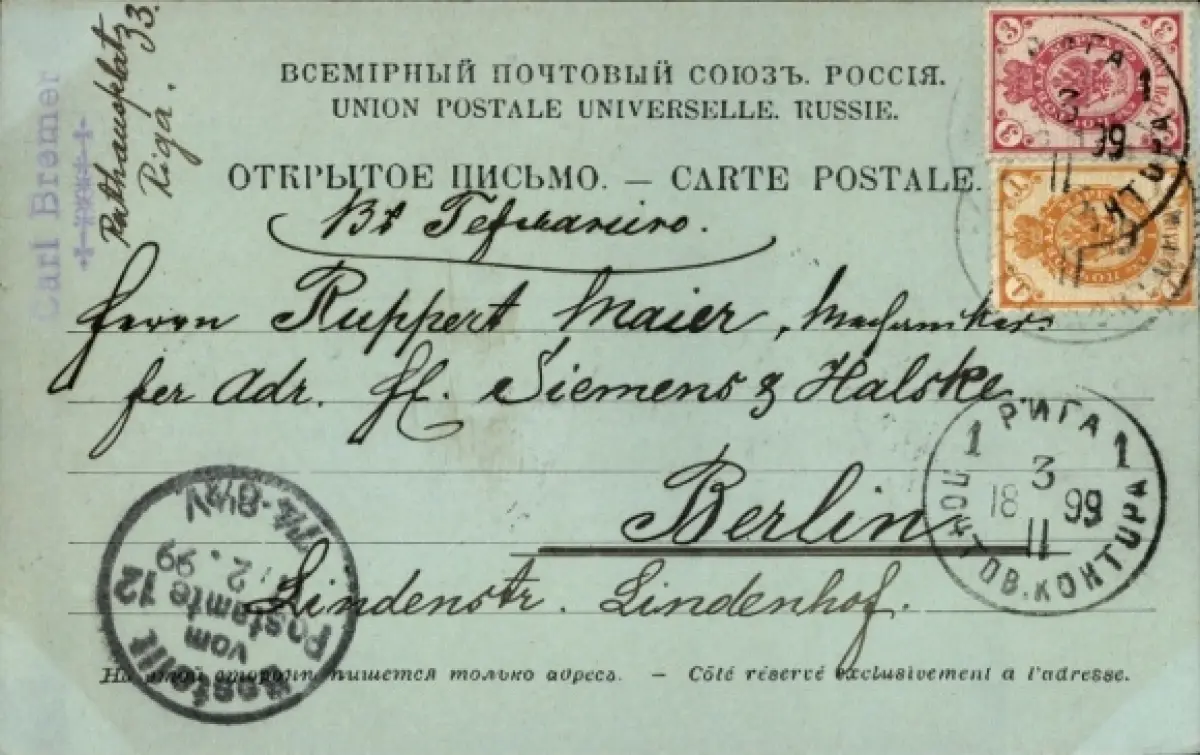 Carl Bremer
Rathausplatz 33.
Riga.
ВСЕМІРНЫЙ ПОЧТОВЫЙ СОЮЗЪ. РОССІЯ.
UNION POSTALE UNIVERSELLE. RUSSIE.
ОТКРЫТОЕ ПИСЬМО. — CARTE POSTALE.
Въ Германію.
Herrn Ruppert Maier, Mechaniker
per Adr. H. Siemens & Halske.
Berlin
Lindenstr. Lindenhof.
РИГА
1 3 1
18 99
II
ПОЧТОВ. КОНТОРА
Bestellt
vom
Postamte 12
2. 99
7¼-8½V
На этой сторонѣ пишется только адресъ. — Côté réservé exclusivement a l'adresse.